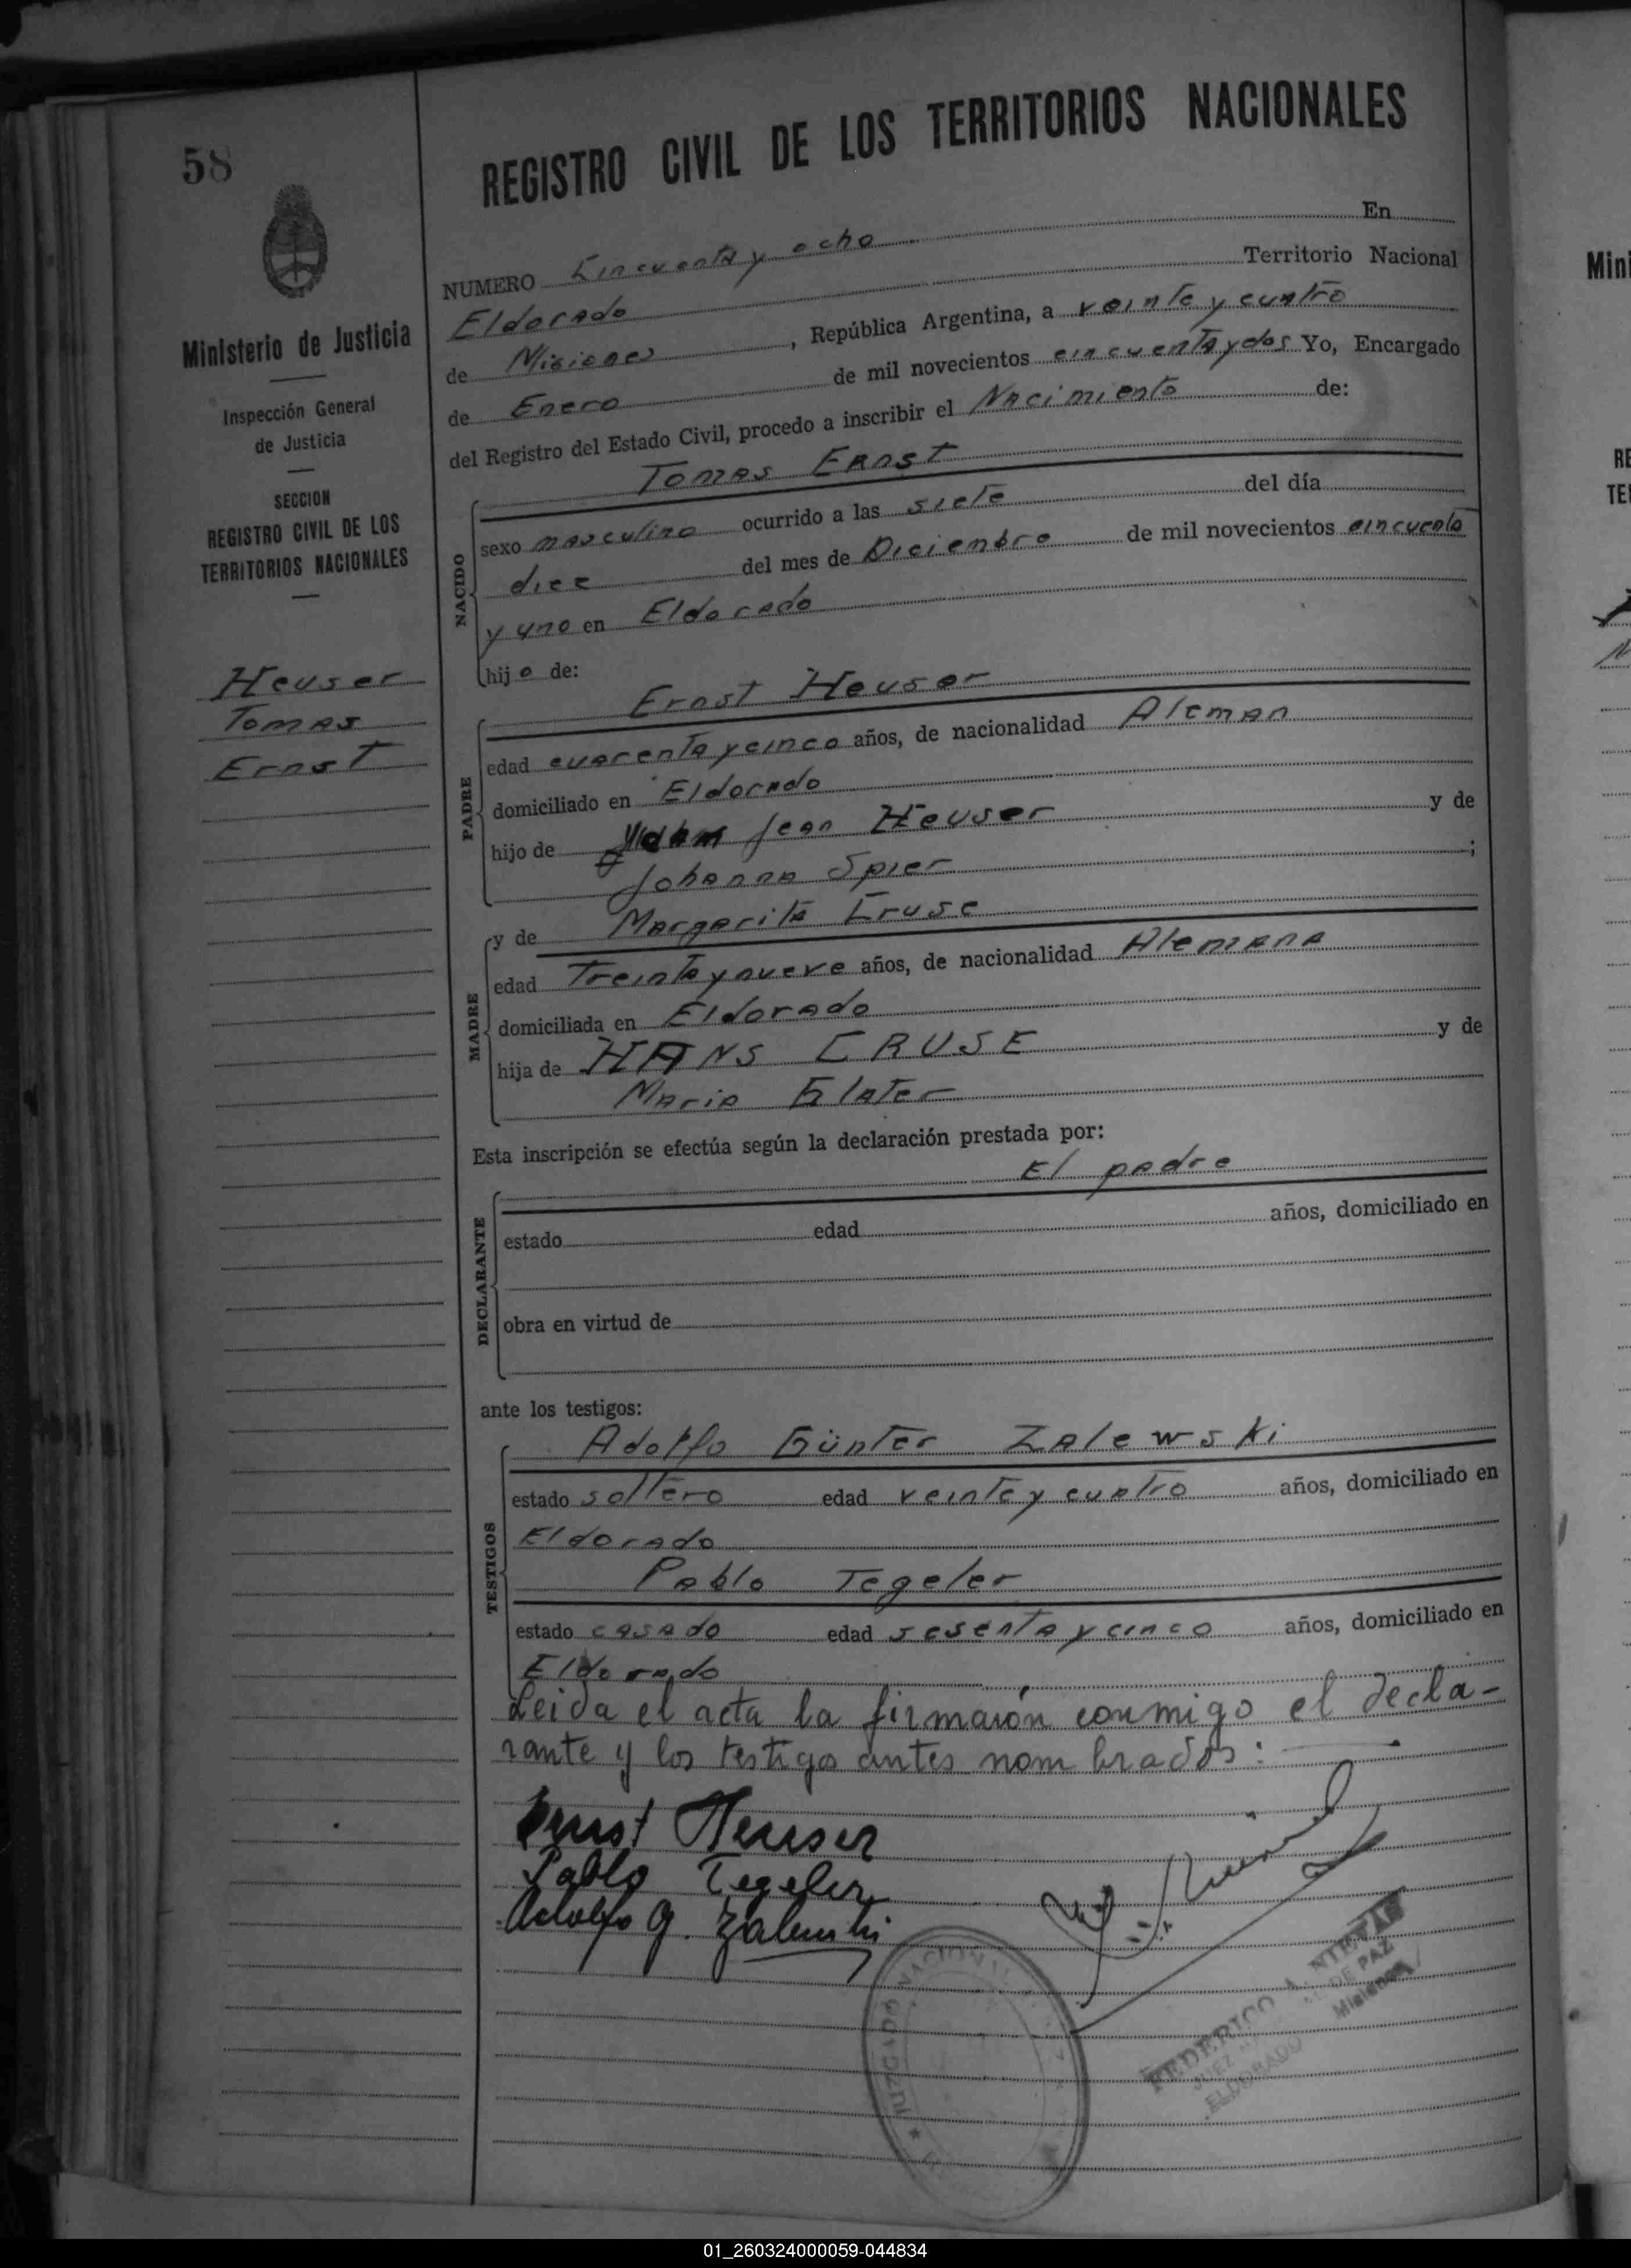 58
REGISTRO CIVIL DE LOS TERRITORIOS NACIONALES
Ministerio de Justicia
Inspección General
de Justicia
SECCION
REGISTRO CIVIL DE LOS
TERRITORIOS NACIONALES
Heuser
Tomas
Ernst
NUMERO Cincuenta y ocho En
Eldorado Territorio Nacional
de Misiones, República Argentina, a veinte y cuatro
de Enero de mil novecientos cincuenta y dos Yo, Encargado
del Registro del Estado Civil, procedo a inscribir el Nacimiento de:
Tomas Ernst
NACIDO
sexo masculino ocurrido a las siete del día
diez del mes de Diciembre de mil novecientos cincuenta
y uno en Eldorado
hijo de:
Ernst Heuser
PADRE
edad cuarenta y cinco años, de nacionalidad Aleman
domiciliado en Eldorado
hijo de Jean Heuser y de
Johanna Spier;
y de Margarita Cruse
MADRE
edad Treinta y nueve años, de nacionalidad Alemana
domiciliada en Eldorado
hija de HANS CRUSE y de
Maria Glater
Esta inscripción se efectúa según la declaración prestada por:
El padre
DECLARANTE
estado edad años, domiciliado en
obra en virtud de
ante los testigos:
Adolfo Günter Zalewski
TESTIGOS
estado soltero edad veinte y cuatro años, domiciliado en
Eldorado
Pablo Tegeler
estado casado edad sesenta y cinco años, domiciliado en
Eldorado
Leida el acta la firmaron conmigo el decla-
rante y los testigo antes nombrados:
Ernst Heuser
Pablo Tegeler
Adolfo G. Zalewski
JUZGADO NACIONAL
FEDERICO A.
JUEZ DE PAZ
ELDORADO Misiones
Mini
RE
TE
01_260324000059-044834